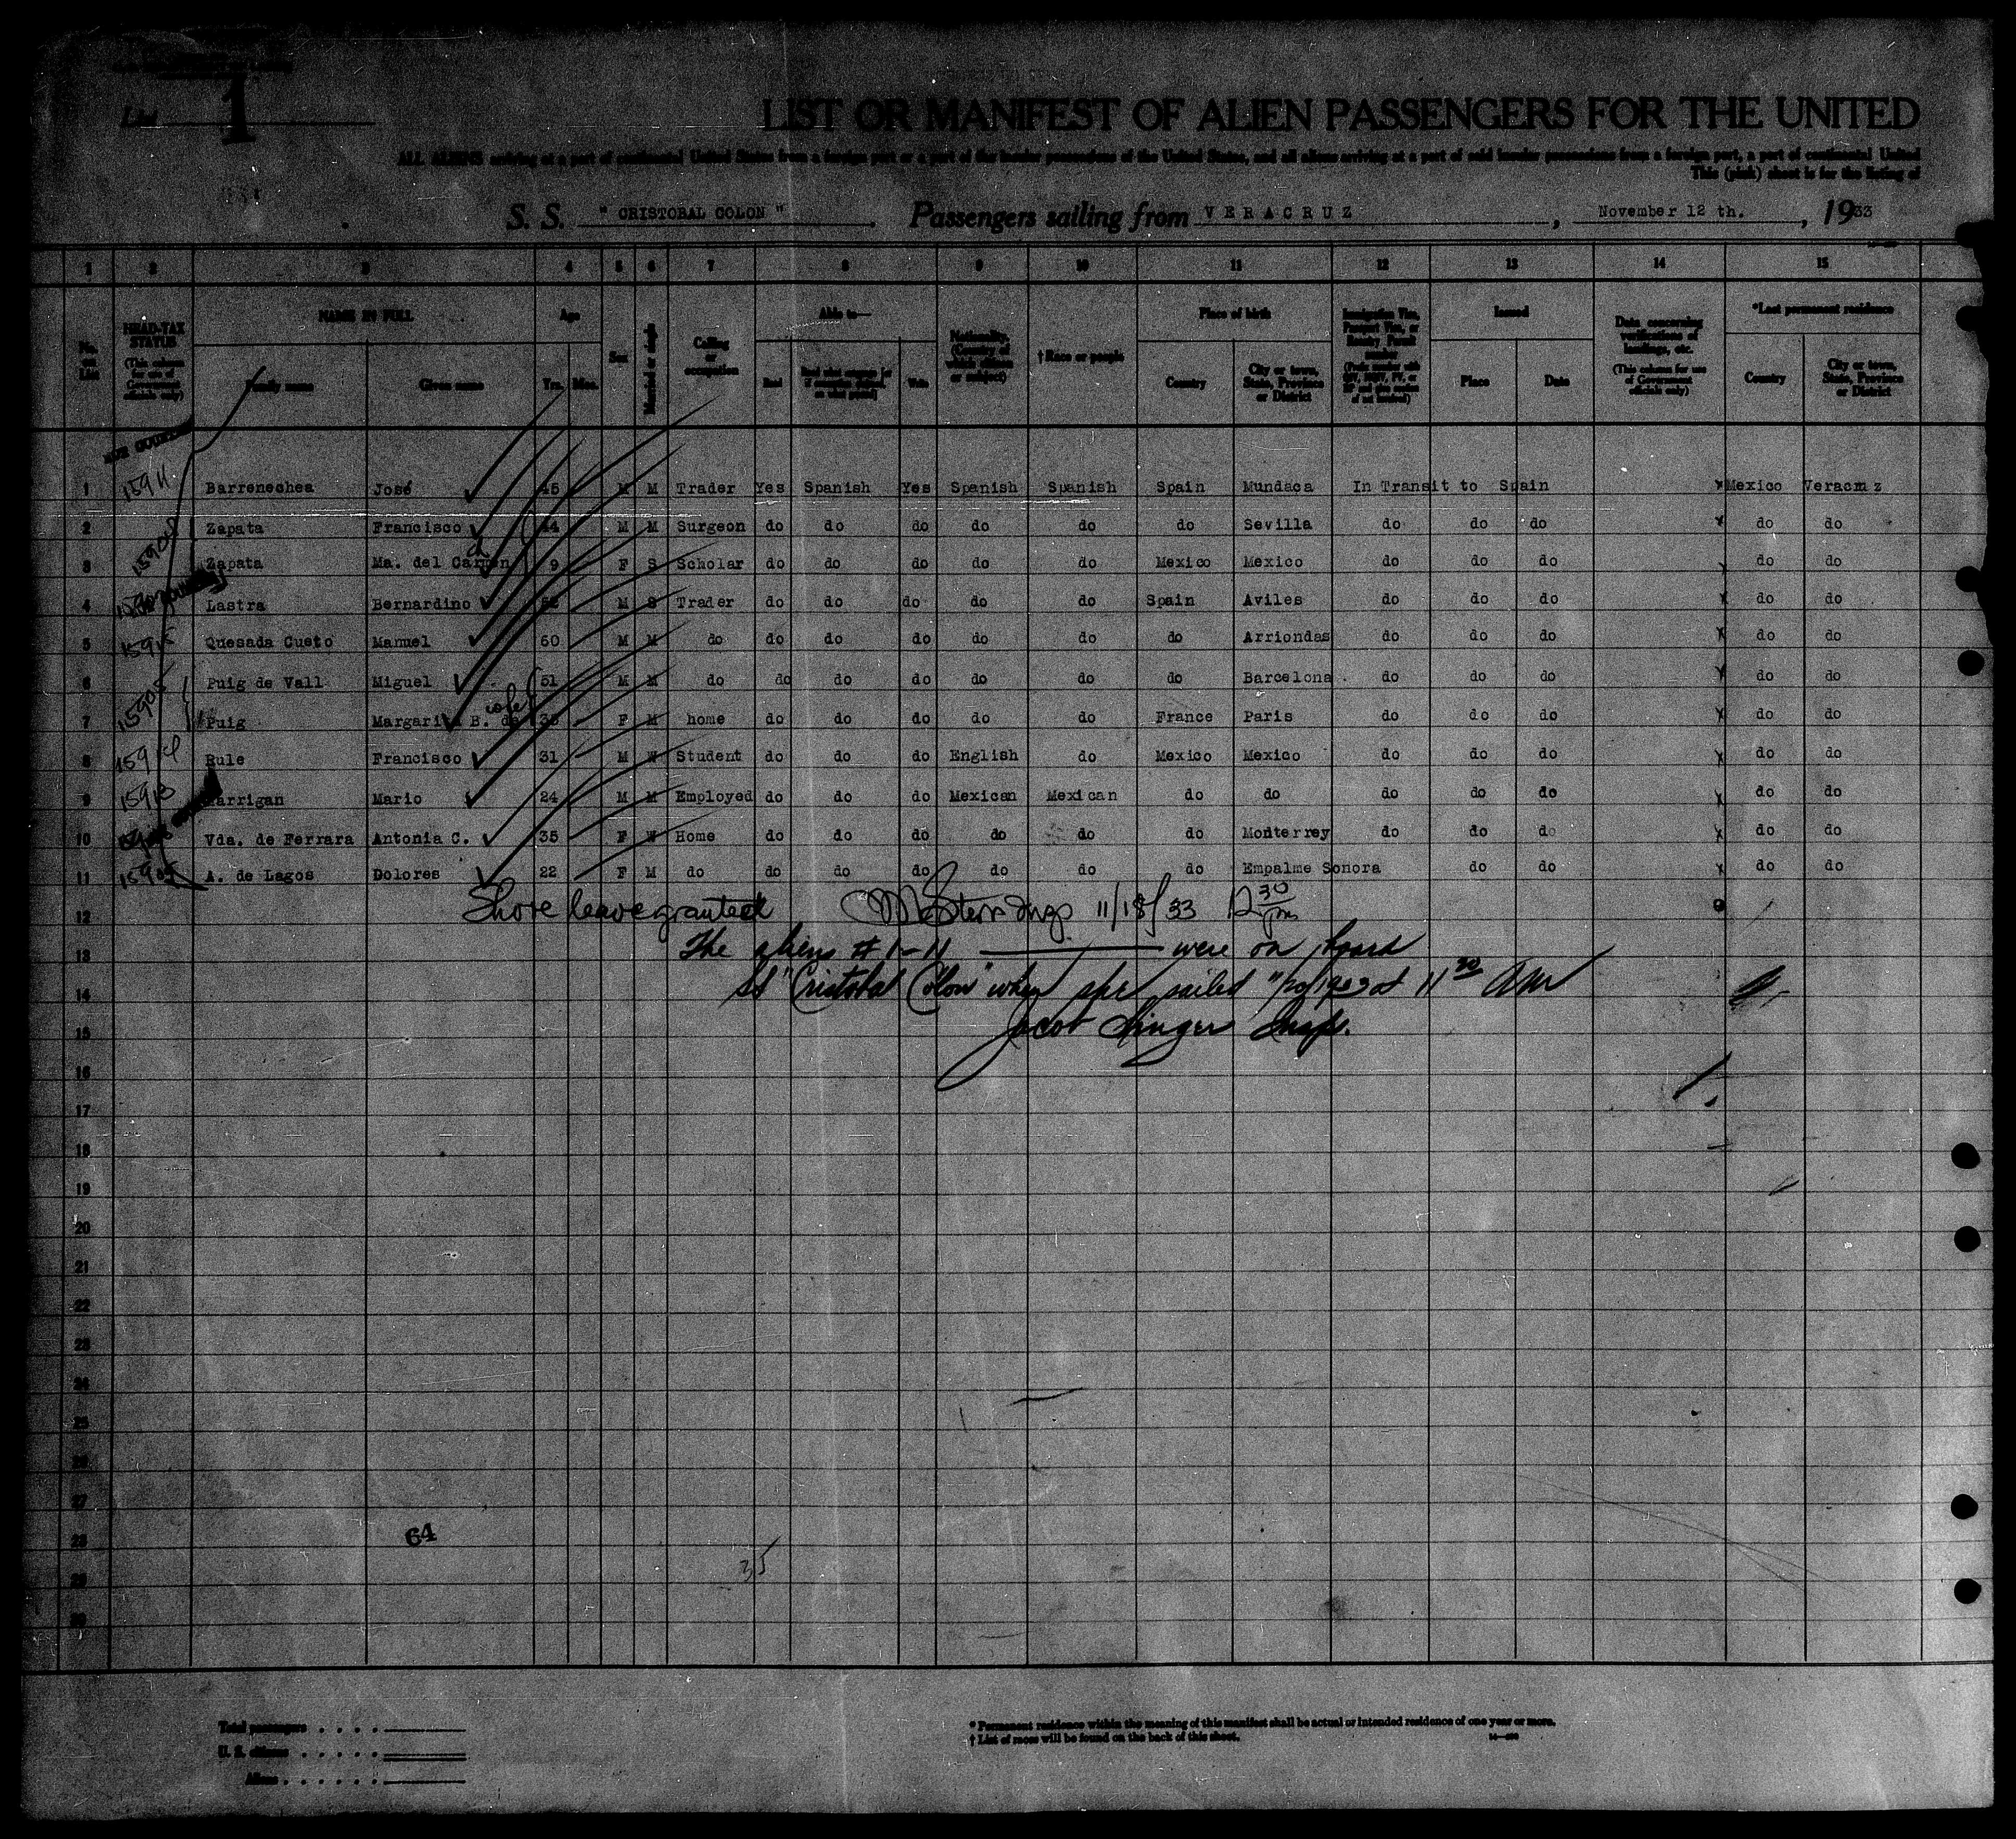 List 1
LIST OR MANIFEST OF ALIEN PASSENGERS FOR THE UNITED
ALL ALIENS arriving at a port of continental United States from a foreign port or a port of the insular possessions of the United States, and all aliens arriving at a port of said insular possessions from a foreign port, a port of continental United
This (pink) sheet is for the listing of
S. S. " CRISTOBAL COLON " Passengers sailing from VERACRUZ, November 12 th., 1933
1 2 3 4 5 6 7 8 9 10 11 12 13 14 15
No. on List
HEAD-TAX STATUS (This column for use of Government officials only)
NAME IN FULL Family name Given name
Age Yrs. Mos.
Sex
Married or single
Calling or occupation
Able to— Read Read what language [or if exemption claimed, on what ground] Write
Nationality. (Country of which citizen or subject)
†Race or people
Place of birth Country City or town, State, Province or District
Immigration Visa, Passport Visa, or Reentry Permit number
Issued Place Date
Data concerning verifications of landings, etc. (This column for use of Government officials only)
*Last permanent residence Country City or town, State, Province or District
1 15911 Barrenechea José 45 M M Trader Yes Spanish Yes Spanish Spanish Spain Mundaca In Transit to Spain x Mexico Veracruz
2 Zapata Francisco 44 M M Surgeon do do do do do do Sevilla do do do x do do
3 Zapata Ma. del Carmen 9 F S Scholar do do do do do Mexico Mexico do do do x do do
4 Lastra Bernardino M S Trader do do do do do Spain Aviles do do do x do do
5 Quesada Cueto Manuel 50 M M do do do do do do do Arriondas do do do x do do
6 Puig de Vall Miguel 51 M M do do do do do do do Barcelona do do do x do do
7 Puig Margarita B. de F M home do do do do do France Paris do do do x do do
8 15914 Rule Francisco 31 M W Student do do do English do Mexico Mexico do do do x do do
9 15913 Mario 24 M M Employed do do do Mexican Mexican do do do do do x do do
10 Vda. de Ferrara Antonia C. 35 F W Home do do do do do do Monterrey do do do x do do
11 A. de Lagos Dolores 22 F M do do do do do do do Empalme Sonora do do x do do
12 Shore leave granted Insp. 11/18/33 12 30 pm
13 The aliens # 1-11 were on board
14 SS "Cristobal Colon" when she sailed at 11 30 AM
15 Jacob Singer Insp.
16
17
18
19
20
21
22
23
24
25
26
27
28 64
29 35
30
Total passengers
U. S. citizens
Aliens
* Permanent residence within the meaning of this manifest shall be actual or intended residence of one year or more.
† List of races will be found on the back of this sheet.